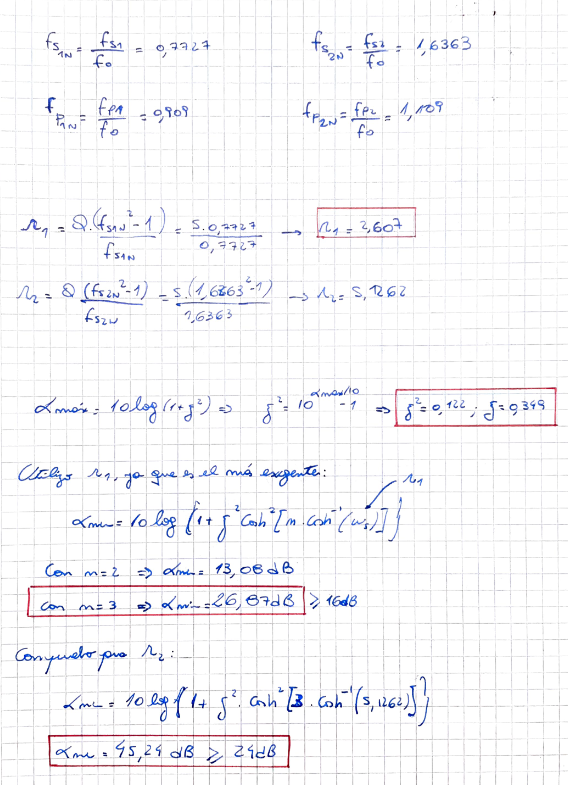 fS1N = fS1/f0 = 0,7727
fS2N = fS2/f0 = 1,6363
fP1N = fP1/f0 = 0,909
fP2N = fP2/f0 = 1,109
Ω1 = Q·(fS1N² - 1)/fS1N = 5·0,7727/0,7727 → Ω1 = 2,607
Ω2 = Q (fS2N² - 1)/fS2N = 5·(1,6363² - 1)/1,6363 → Ω2 = 5,1262
αmáx = 10 log (1+ξ²) ⇒ ξ² = 10^(αmax/10) - 1 ⇒ ξ² = 0,122 ; ξ = 0,349
Utilizo Ω1, ya que es el más exigente:
Ω1
αmin = 10 log {1 + ξ² Cosh² [n · Cosh⁻¹ (ωs)]}
Con n=2 ⇒ αmin = 13,08 dB
Con n=3 ⇒ αmin = 26,87 dB ≥ 16 dB
Compruebo para Ω2:
αmin = 10 log {1 + ξ² · Cosh² [3 · Cosh⁻¹ (5,1262)]}
αmin = 45,24 dB ≥ 24 dB